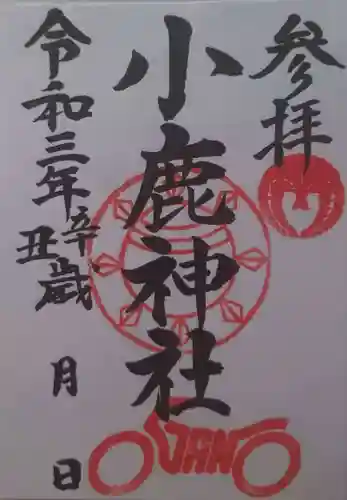 参拝
小鹿神社
令和三年辛丑歳 月 日